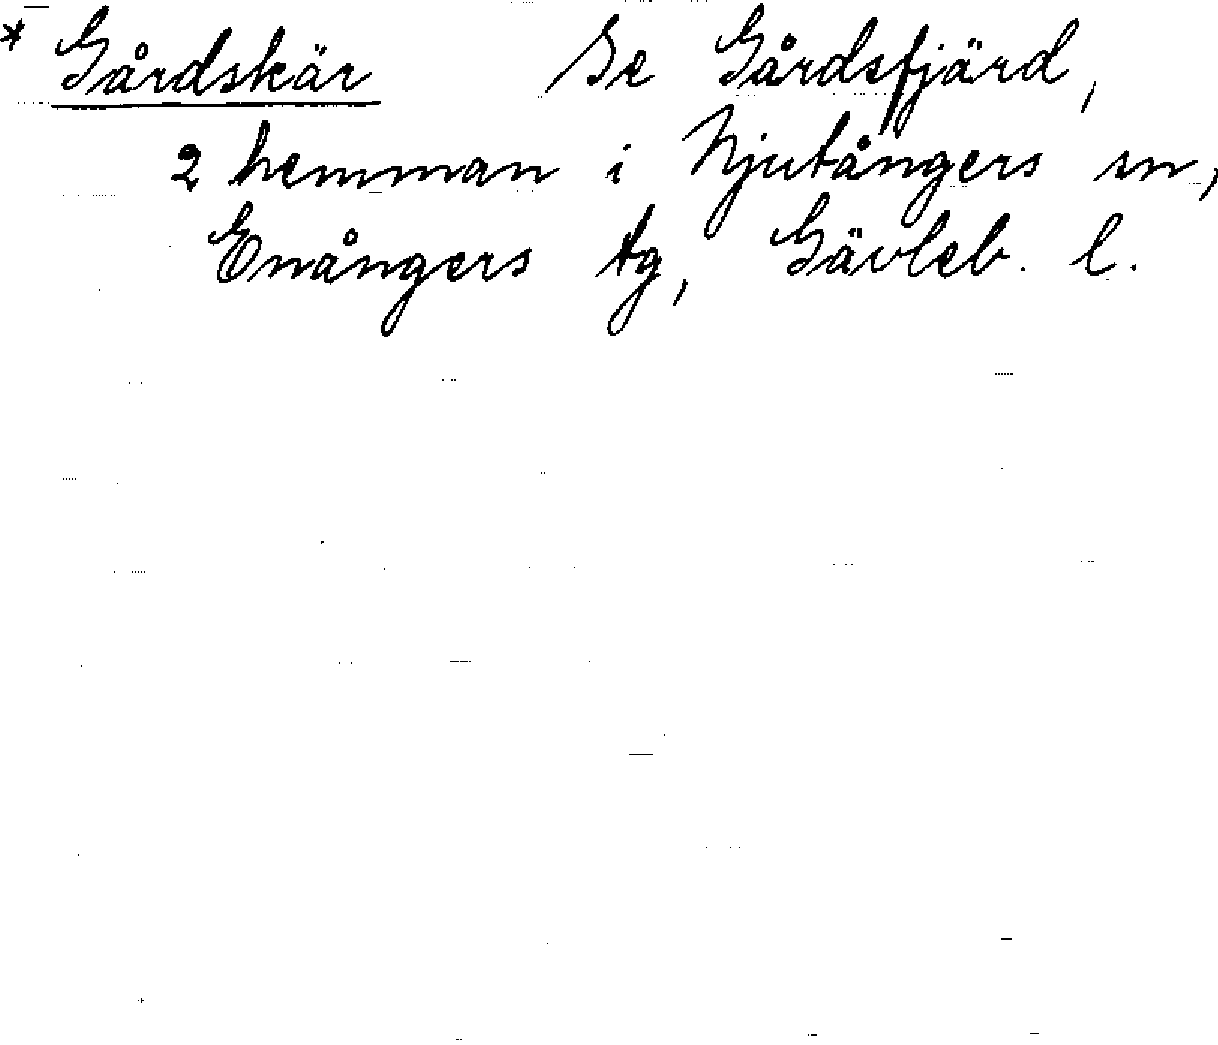 * Gårdskär Se Gårdsfjärd,
2 hemman i Njutångers sn,
Enångers tg, Gävleb. l.